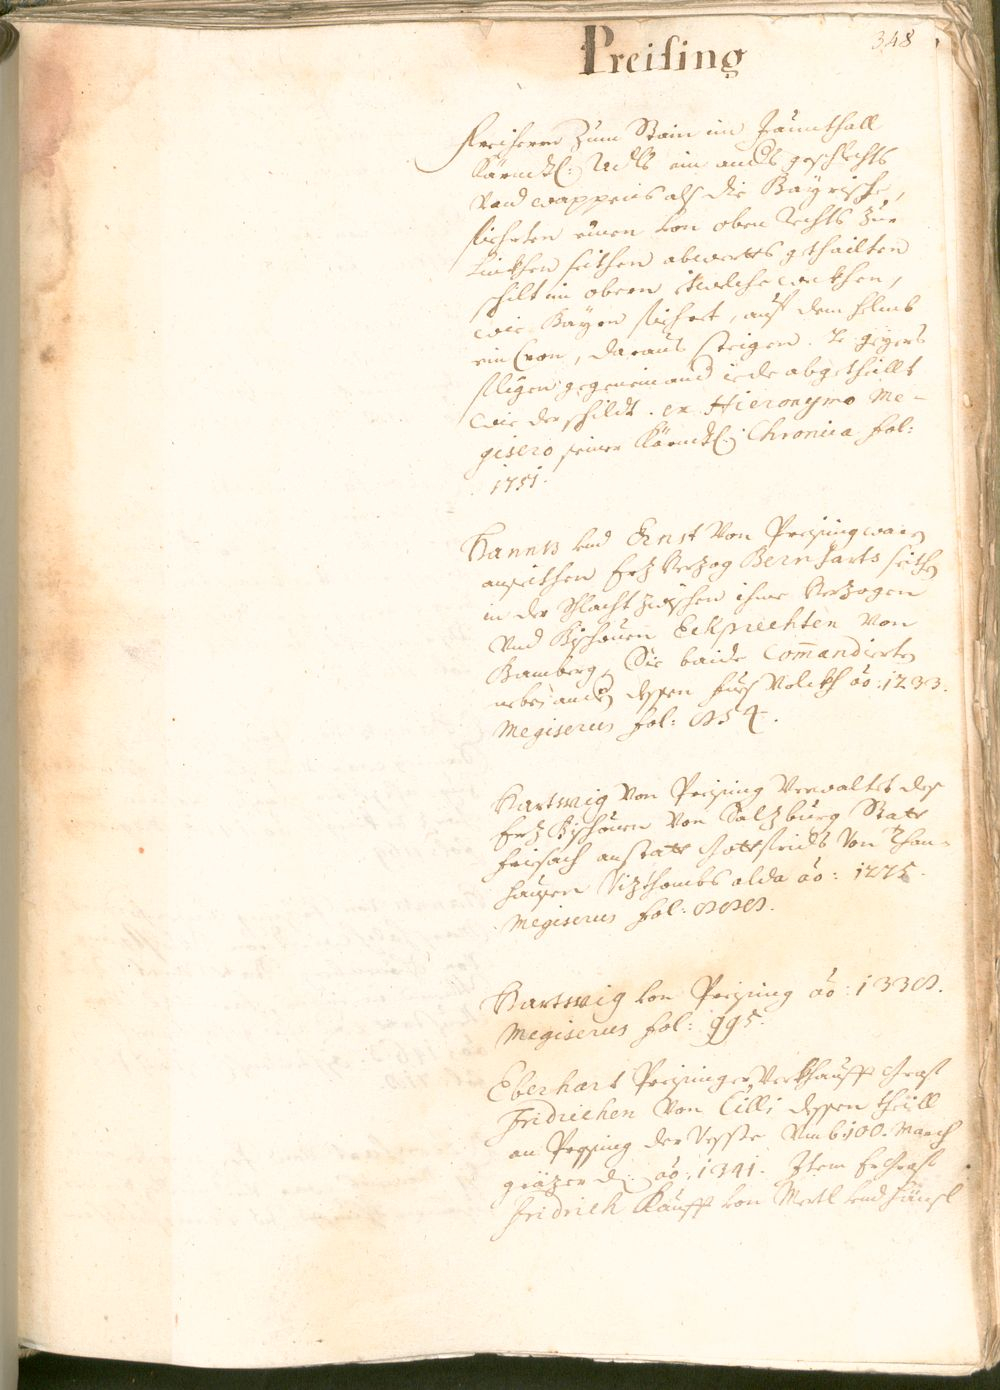 Preising
348
Freiherrn Zum Stain im Jaunthall
Kärndtl: Adls ein anders geschlechts
Vnd wappens als die Bayrische,
fiehrten einen von oben rechts zur
Linkhen seithen abwerts gethailten
schilt im obern welche wekhen,
wie Bayrn fiehrt, auf dem helmb
ein Cron, daraus steigen
fligen gegeneinand iede abgethaillt
wie der schildt. ex Hieronymo Me-
gisero seiner Kärndtl: Chronica fol:
1751.
Hannss vnd Ernst Von Preising waren
auf seithen Herzog Bernharts seithen
in der schlacht zwischen ihme Herzogen
Vnd Bischouen Eckprechten Von
Bamberg, Sie baide Commandierten
neben andern dessen fues Volckh ao: 1233.
Megiserus fol: 854.
Hartwig Von Preising Verwaltet des
Erz Bischouen Von Salzburg Statt
Freisach anstatt Gottfrids Von Than-
hausen Vizthombs alda ao: 1275.
Megiserus fol: 888.
Hartwig von Preising ao: 1338.
Megiserus fol: 995.
Eberhart Preisinger Verkhaufft Graf
Fridrichen Von Cilli dessen thaill
an Preising der Vesste Vmb 100. March
gräzer d: ao: 1341. Item Er Graf
Fridrich Kaufft von Mertl vnd Hänsl